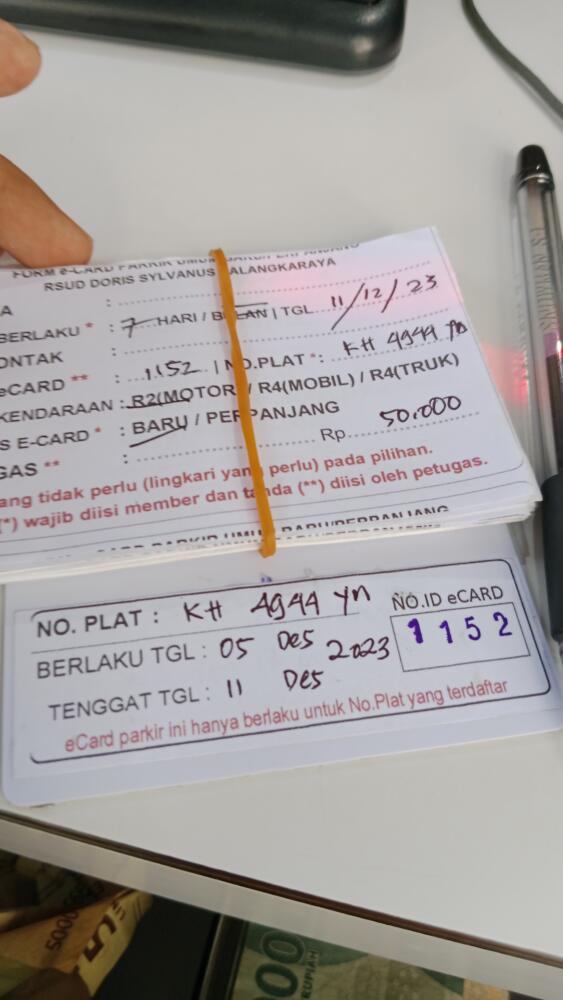 FORM e-CARD PARKIR UMUM
RSUD DORIS SYLVANUS PALANGKARAYA
A :
BERLAKU * : 7 HARI / BULAN | TGL 11/12/23
ONTAK :
eCARD ** : 1152 | NO.PLAT * : KH 4944 YN
KENDARAAN : R2(MOTOR) / R4(MOBIL) / R4(TRUK)
S E-CARD * : BARU / PERPANJANG
GAS ** : Rp. 50.000
ang tidak perlu (lingkari yang perlu) pada pilihan.
(*) wajib diisi member dan tanda (**) diisi oleh petugas.
CARD PARKIR UMUM BARU/PERPANJANG
NO. PLAT : KH 4944 YN
NO.ID eCARD
1152
BERLAKU TGL : 05 Des 2023
TENGGAT TGL : 11 Des
eCard parkir ini hanya berlaku untuk No.Plat yang terdaftar
SNOWMAN V5
5000